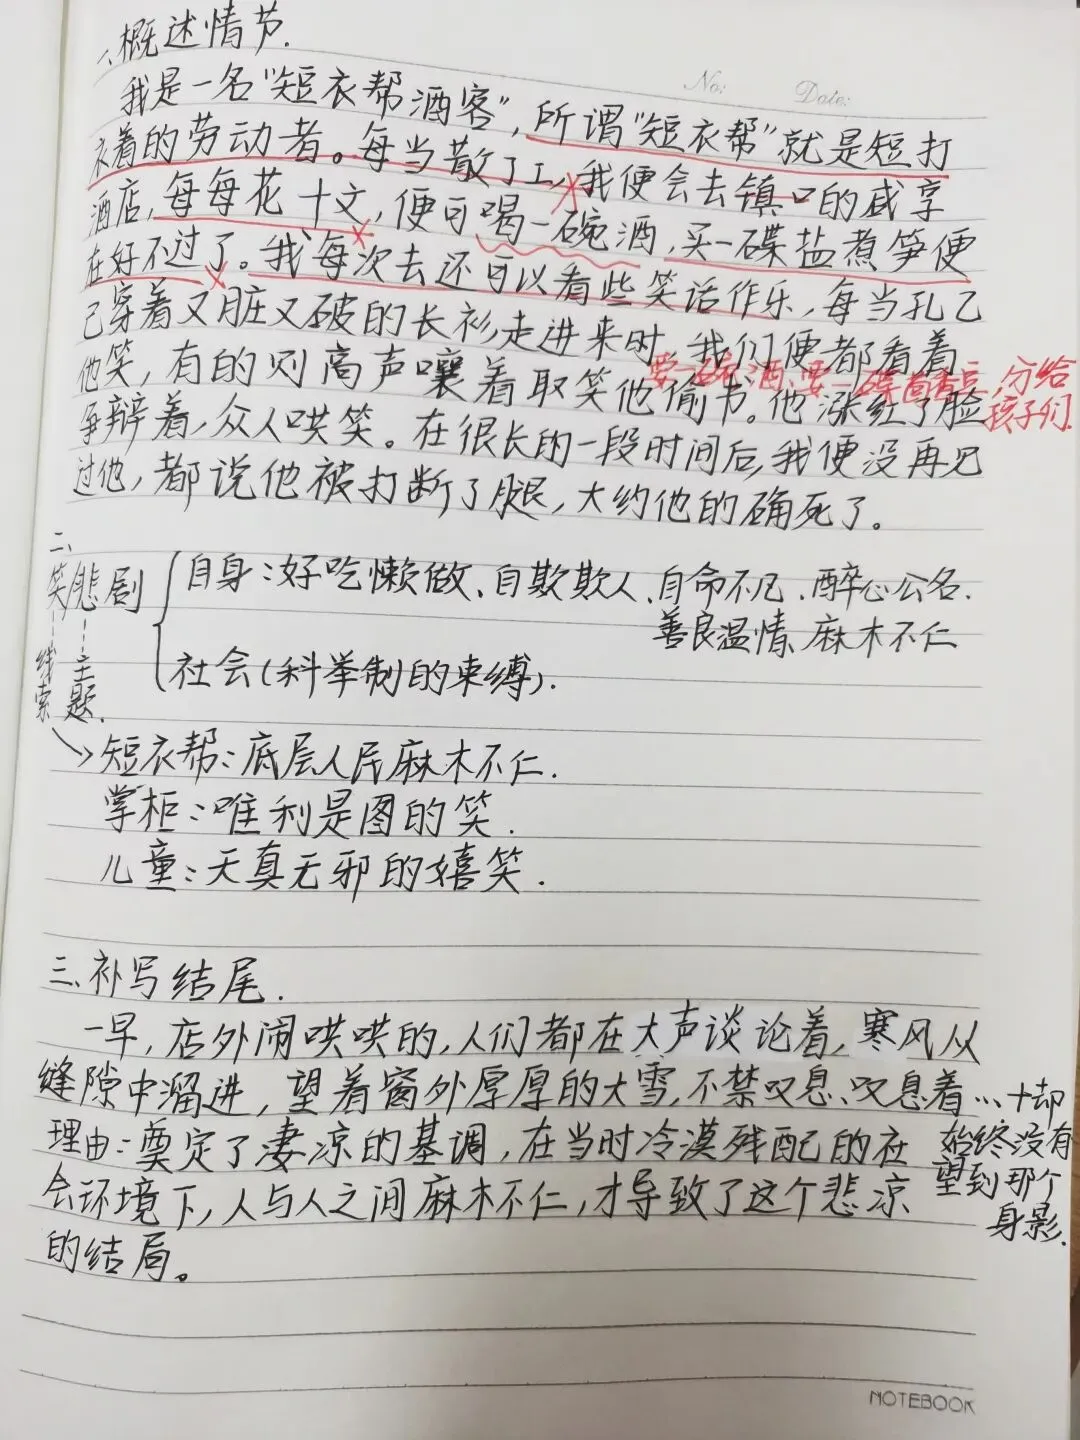 一、概述情节.
No:
Date:
我是一名"短衣帮酒客"，所谓"短衣帮"就是短打
衣着的劳动者。每当散了工，我便会去镇口的咸亨
酒店，每每花十文，便可喝一碗酒，买一碟盐煮笋便
在好不过了。我每次去还可以看些笑话作乐，每当孔乙
己穿着又脏又破的长衫，走进来时，我们便都看着
要一碗酒、要一碟茴香豆，分给
孩子们.
他笑，有的则高声嚷着取笑他偷书。他涨红了脸
争辩着，众人哄笑。在很长的一段时间后，我便没再见
过他，都说他被打断了腿，大约他的确死了。
二、
笑---线索
悲剧---主题.
自身：好吃懒做、自欺欺人、自命不凡、醉心公名.
善良温情、麻木不仁
社会(科举制的束缚).
→短衣帮：底层人民麻木不仁.
掌柜：唯利是图的笑.
儿童：天真无邪的嬉笑.
三、补写结尾.
一早，店外闹哄哄的，人们都在大声谈论着，寒风从
缝隙中溜进，望着窗外厚厚的大雪，不禁叹息、叹息着…
却
始终没有
望到那个
身影.
理由：奠定了凄凉的基调，在当时冷漠残酷的社
会环境下，人与人之间麻木不仁，才导致了这个悲凉
的结局。
NOTEBOOK